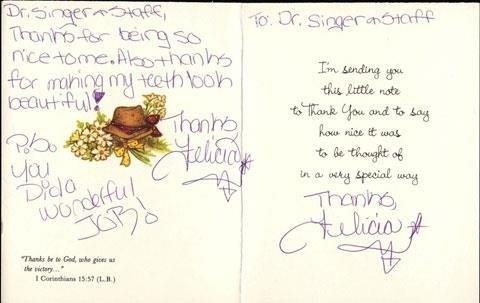 Dr. Singer + Staff,
Thanks for being so
nice to me. Also thanks
for making my teeth look
beautiful!
Thanks,
Felicia
P.S.
You
Did a
wonderful
JOB!
"Thanks be to God, who gives us
the victory..."
1 Corinthians 15:57 (L.B.)
To: Dr. Singer + Staff
I'm sending you
this little note
to Thank You and to say
how nice it was
to be thought of
in a very special way
Thanks,
Felicia